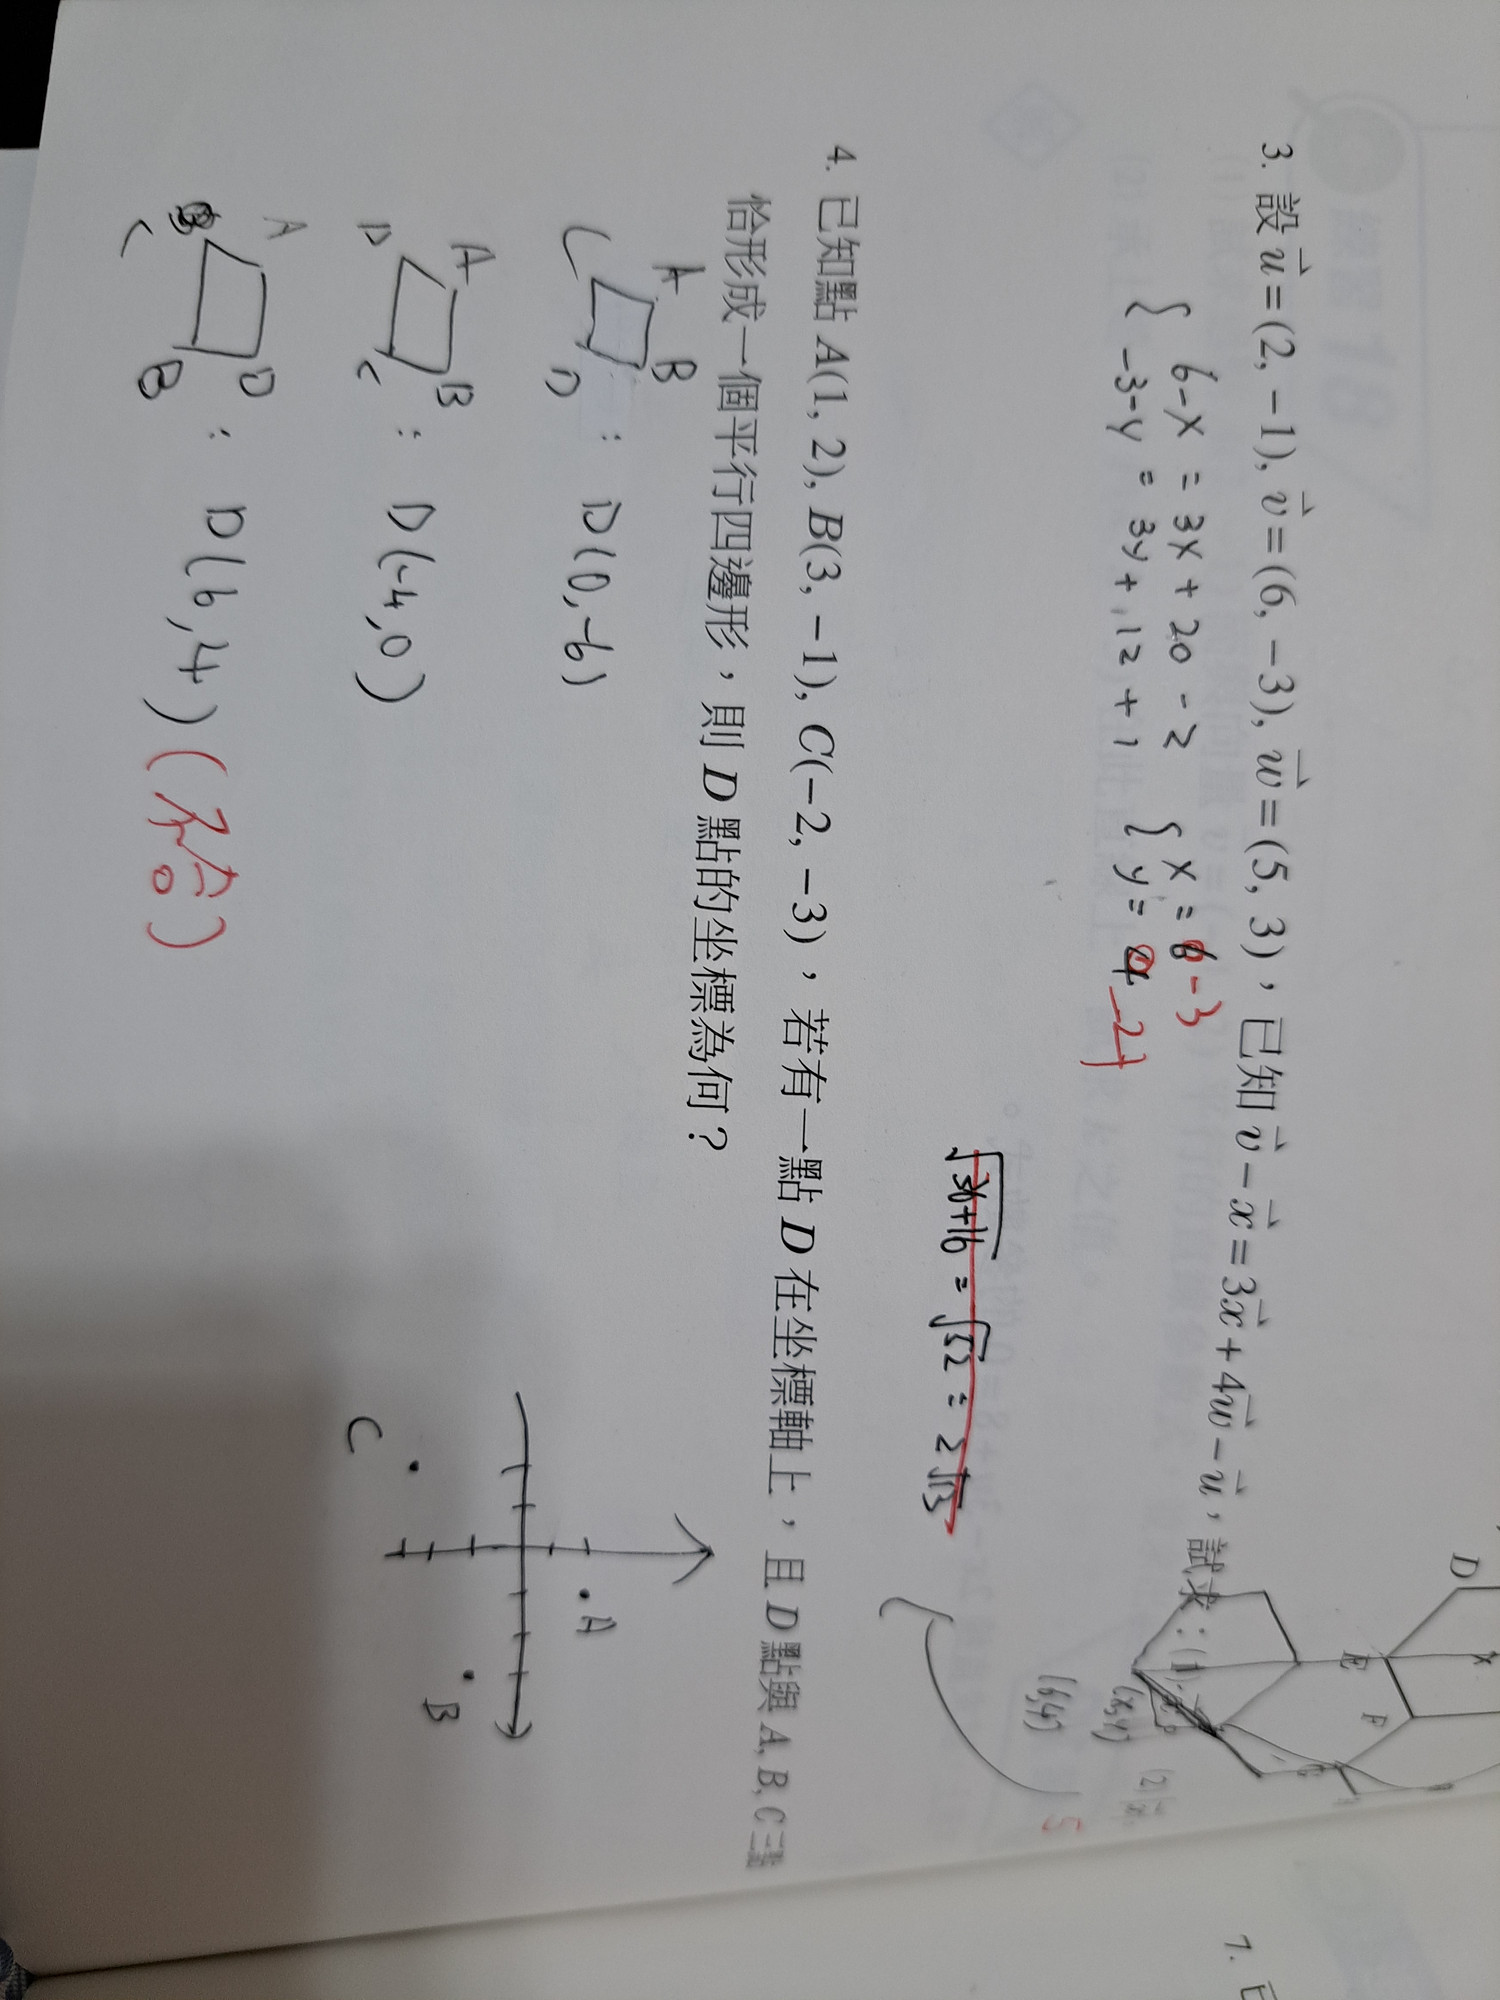 3. 設 u⃗=(2, −1), v⃗=(6, −3), w⃗=(5, 3)，已知 v⃗−x⃗=3x⃗+4w⃗−u⃗，試求：(1)
6-x = 3x + 20 - 2
-3-y = 3y + 12 + 1
x = -3
y = -4
(x,y)
√36+16 = √52 = 2√13
5
4. 已知點 A(1, 2), B(3, −1), C(−2, −3)，若有一點 D 在坐標軸上，且 D 點與 A, B, C 三點
恰形成一個平行四邊形，則 D 點的坐標為何？
A B
C D : D(0,-6)
A B
D C : D(-4,0)
A D
C B : D(6,4) (不合)
A
B
C
D
E
F
G
1. 已